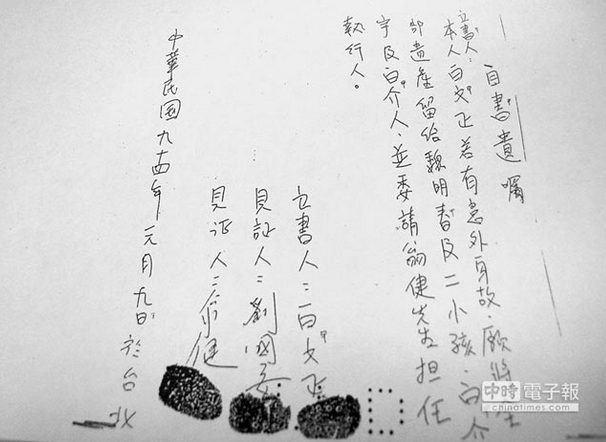 自書遺囑
立書人:
本人白文正若有意外身故,願將全
部遺產留給魏明春及二小孩,白介
宇及白介人,並委請翁健先生擔任
執行人。
立書人:白文正
見証人:劉國
見证人:翁健
中華民国九十四年元月九日於台北
中時電子報
chinatimes.com